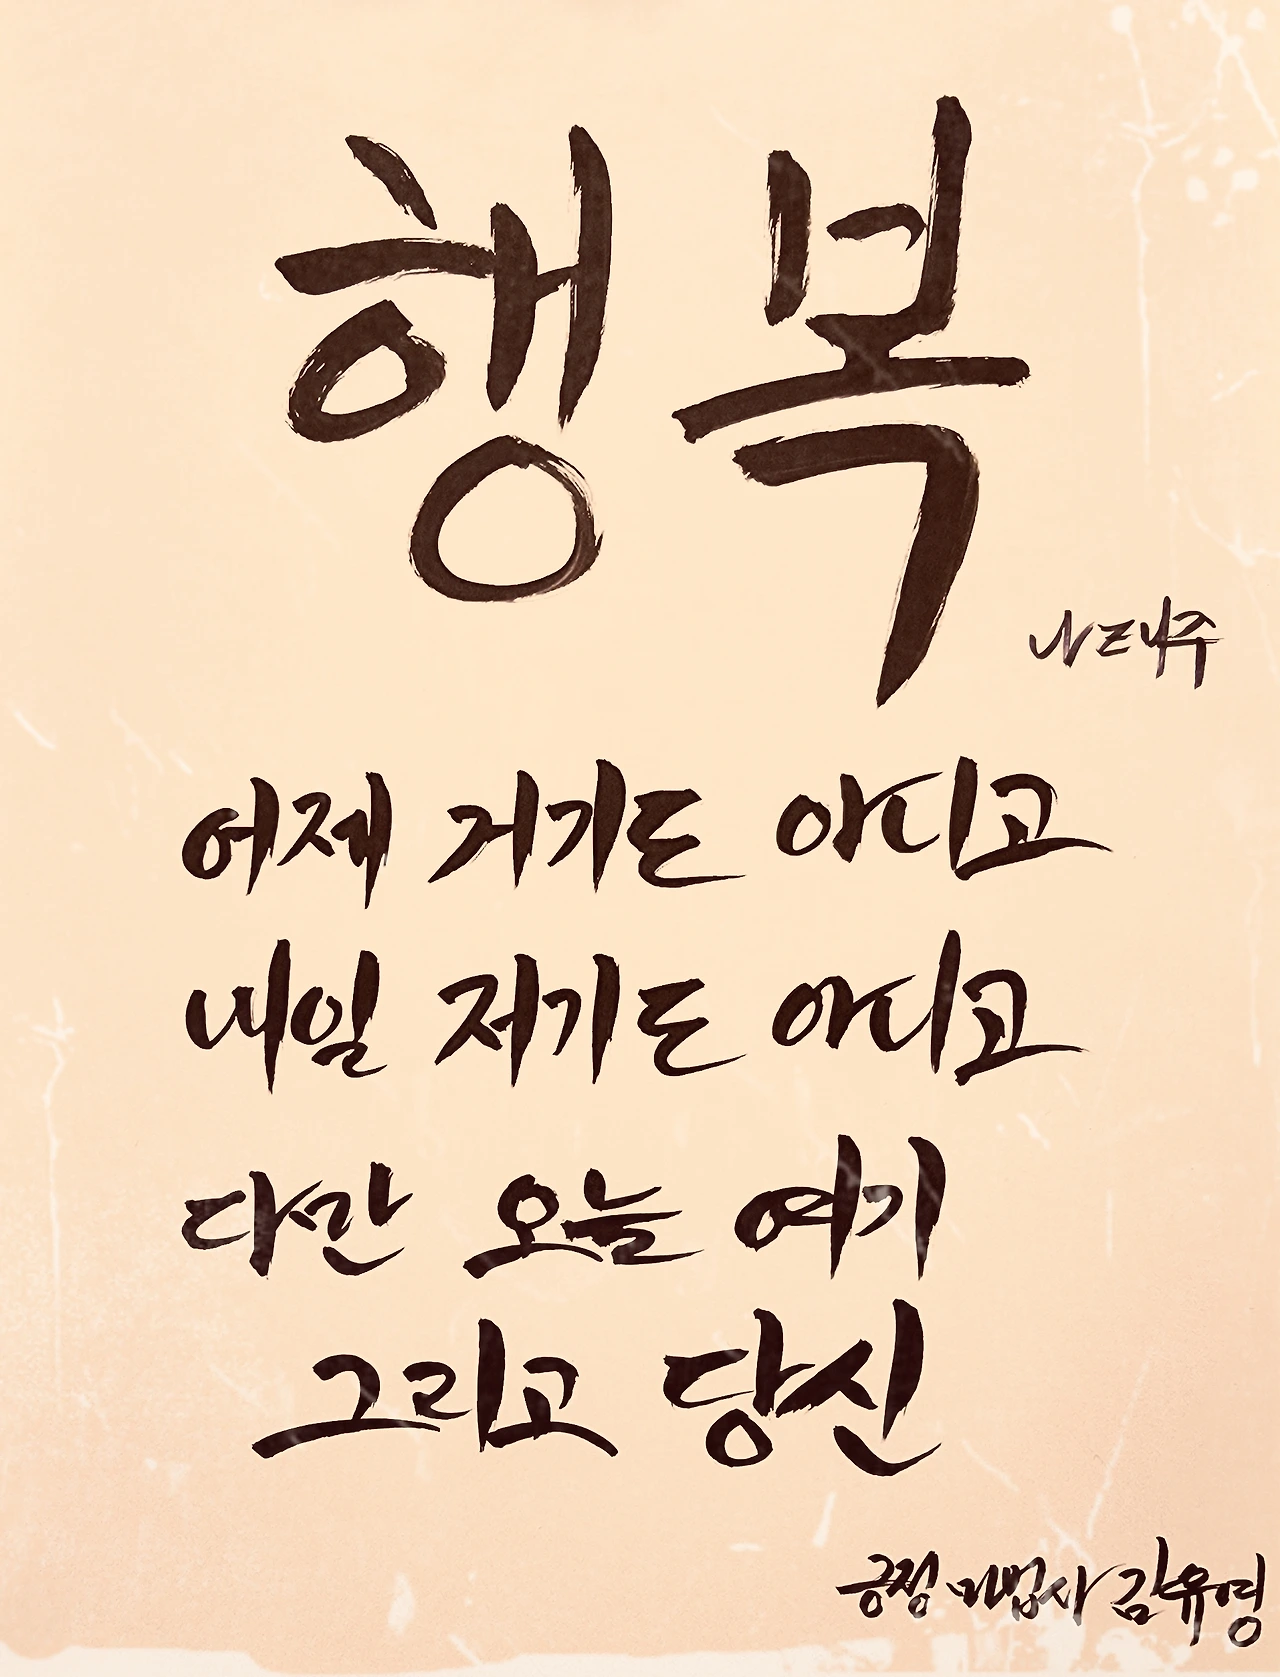 행복
나태주
어제 거기도 아니고
내일 저기도 아니고
다만 오늘 여기
그리고 당신
긍정 마법사 김유영